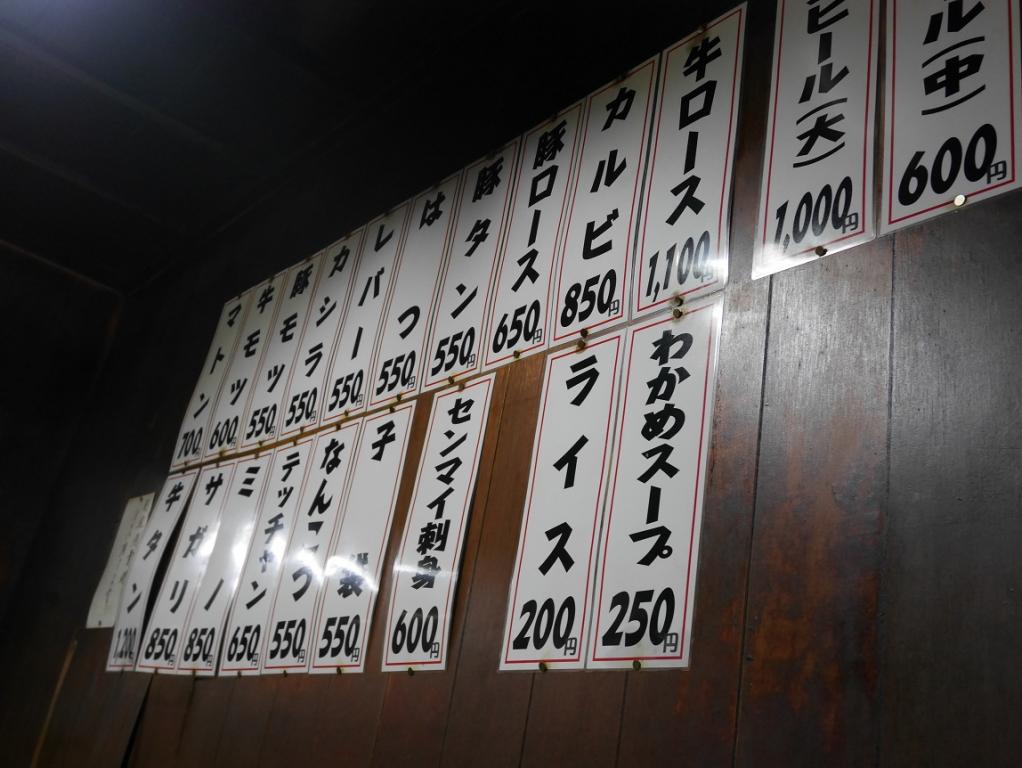 ル(中)
600円
ビール(大)
1,000円
牛ロース
1,100円
カルビ
850円
豚ロース
650円
豚タン
550円
はつ
550円
レバー
550円
カシラ
550円
豚モツ
550円
牛モツ
600円
マトン
700円
わかめスープ
250円
ライス
200円
センマイ刺身
600円
子袋
550円
なんこつ
550円
テッチャン
650円
ミノ
850円
サガリ
850円
牛タン
1,200円